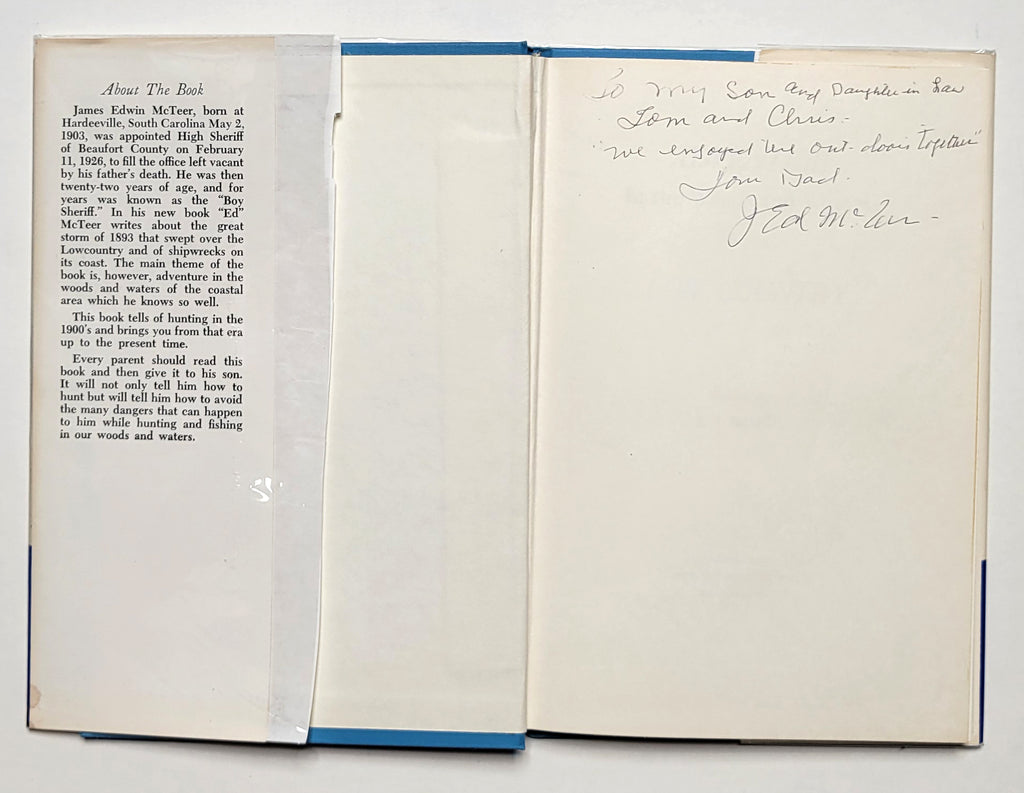 About The Book
James Edwin McTeer, born at
Hardeeville, South Carolina May 2,
1903, was appointed High Sheriff
of Beaufort County on February
11, 1926, to fill the office left vacant
by his father's death. He was then
twenty-two years of age, and for
years was known as the "Boy
Sheriff." In his new book "Ed"
McTeer writes about the great
storm of 1893 that swept over the
Lowcountry and of shipwrecks on
its coast. The main theme of the
book is, however, adventure in the
woods and waters of the coastal
area which he knows so well.
This book tells of hunting in the
1900's and brings you from that era
up to the present time.
Every parent should read this
book and then give it to his son.
It will not only tell him how to
hunt but will tell him how to avoid
the many dangers that can happen
to him while hunting and fishing
in our woods and waters.
To my Son and Daughter in Law
Tom and Chris-
"we enjoyed the out-doors together"
Dad.
J Ed McTeer -